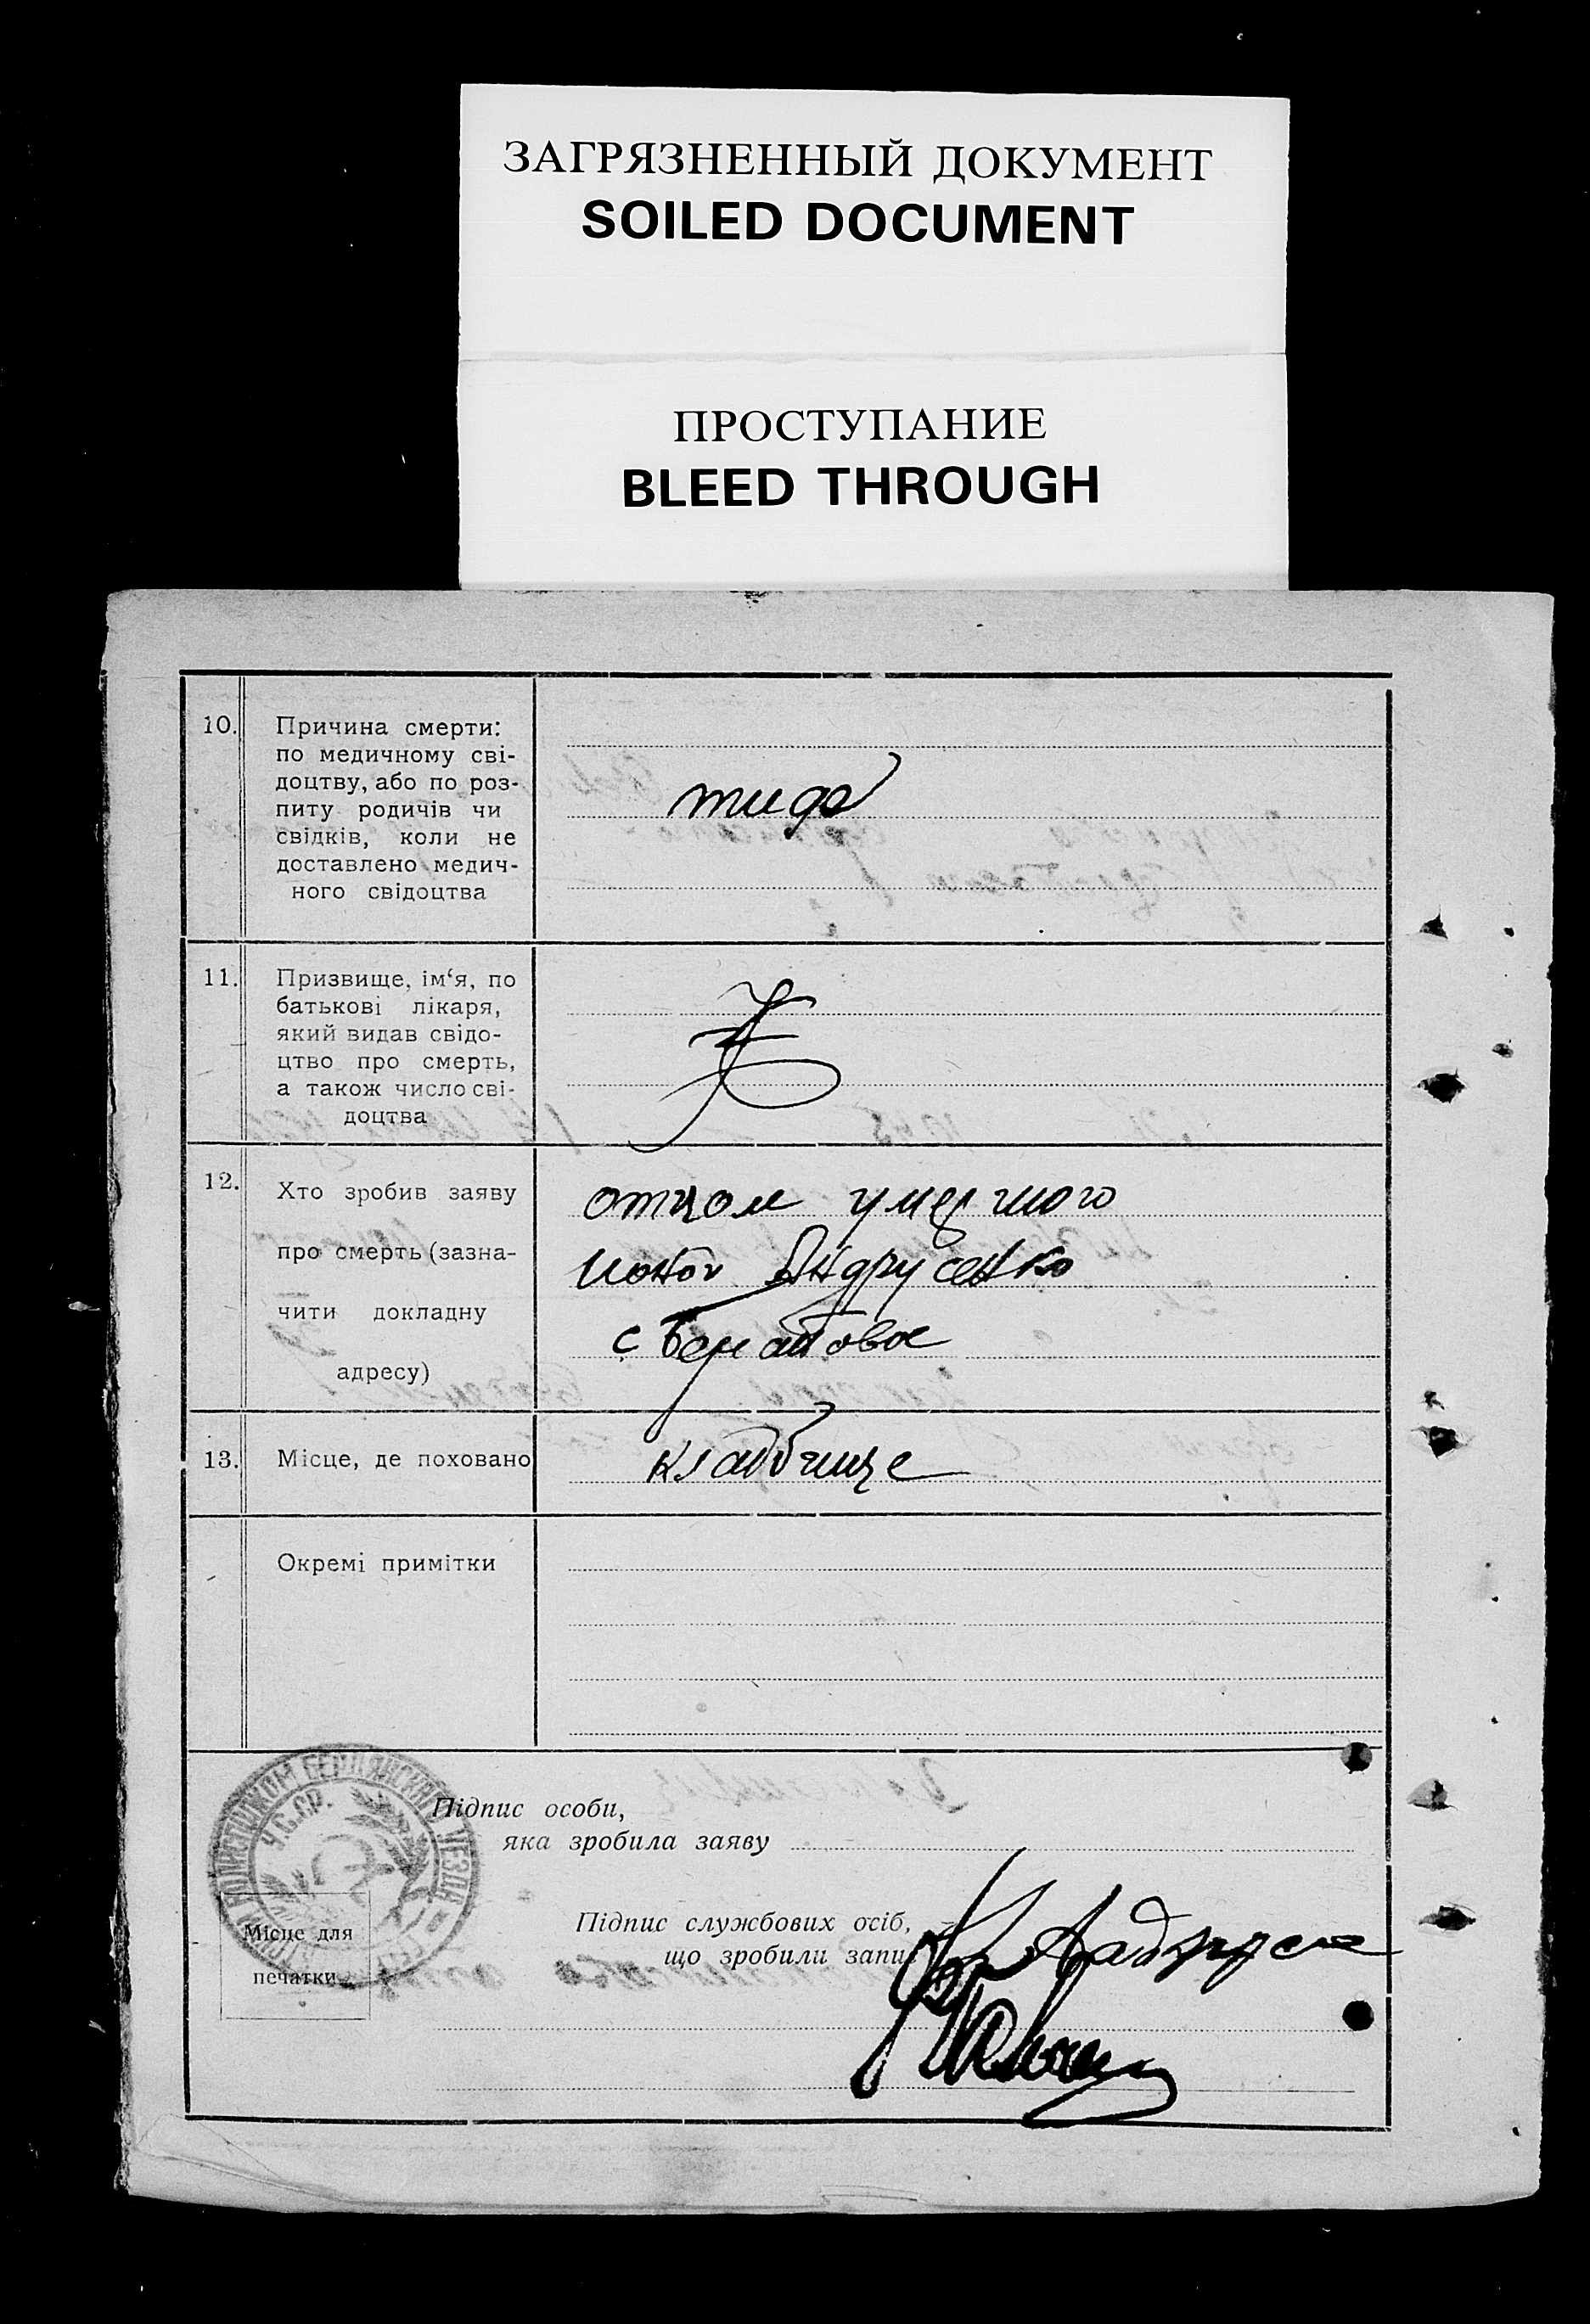 ЗАГРЯЗНЕННЫЙ ДОКУМЕНТ
SOILED DOCUMENT
ПРОСТУПАНИЕ
BLEED THROUGH
10.
Причина смерти:
по медичному сві-
доцтву, або по роз-
питу родичів чи
свідків, коли не
доставлено медич-
ного свідоцтва
11.
Призвище, ім‘я, по
батькові лікаря,
який видав свідо-
цтво про смерть,
а також число сві-
доцтва
12.
Хто зробив заяву
про смерть (зазна-
чити докладну
адресу)
отцом умершого
Андрусенко
с
13.
Місце, де поховано
кладбище
Окремі примітки
Підпис особи,
яка зробила заяву
У.С.С.Р.
Місце для
печатки
Підпис службових осіб,
що зробили запис